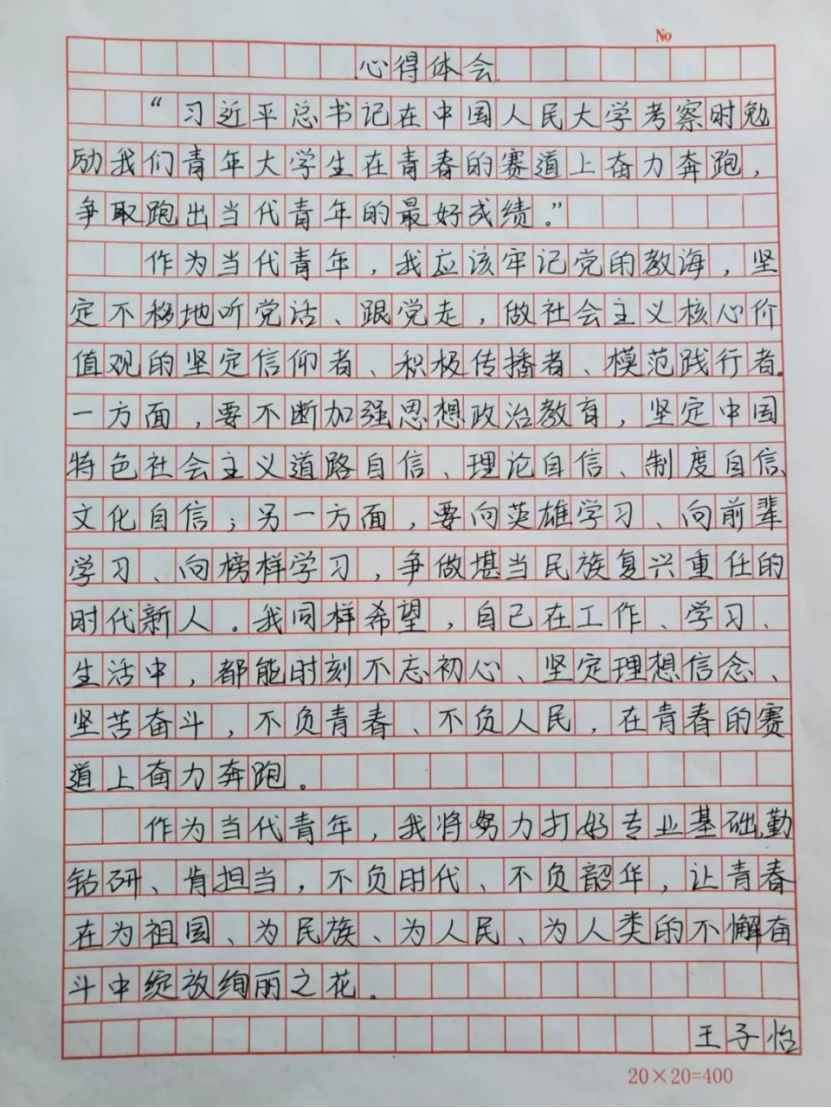 No
心得体会
“习近平总书记在中国人民大学考察时勉
励我们青年大学生在青春的赛道上奋力奔跑，
争取跑出当代青年的最好成绩。”
作为当代青年，我应该牢记党的教海，坚
定不移地听党话、跟党走，做社会主义核心价
值观的坚定信仰者、积极传播者、模范践行者。
一方面，要不断加强思想政治教育，坚定中国
特色社会主义道路自信、理论自信、制度自信、
文化自信；另一方面，要向英雄学习、向前辈
学习、向榜样学习，争做堪当民族复兴重任的
时代新人。我同样希望，自己在工作、学习、
生活中，都能时刻不忘初心、坚定理想信念、
坚苦奋斗，不负青春、不负人民，在青春的赛
道上奋力奔跑。
作为当代青年，我将努力打好专业基础，勤
钻研、肯担当，不负时代、不负韶华，让青春
在为祖国、为民族、为人民、为人类的不懈奋
斗中绽放绚丽之花。
王子怡
20×20=400